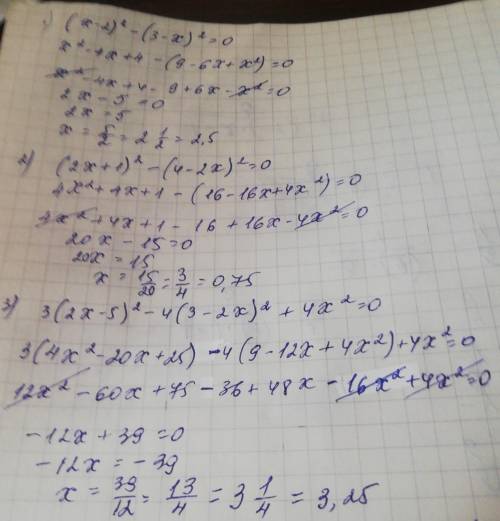 1) (x-2)² - (3-x)² = 0
x² - 4x + 4 - (9 - 6x + x²) = 0
x² - 4x + 4 - 9 + 6x - x² = 0
2x - 5 = 0
2x = 5
x = 5/2 = 2 1/2 = 2,5
2) (2x+1)² - (4-2x)² = 0
4x² + 4x + 1 - (16 - 16x + 4x²) = 0
4x² + 4x + 1 - 16 + 16x - 4x² = 0
20x - 15 = 0
20x = 15
x = 15/20 = 3/4 = 0,75
3) 3(2x-5)² - 4(3-2x)² + 4x² = 0
3(4x² - 20x + 25) - 4(9 - 12x + 4x²) + 4x² = 0
12x² - 60x + 75 - 36 + 48x - 16x² + 4x² = 0
-12x + 39 = 0
-12x = -39
x = 39/12 = 13/4 = 3 1/4 = 3,25